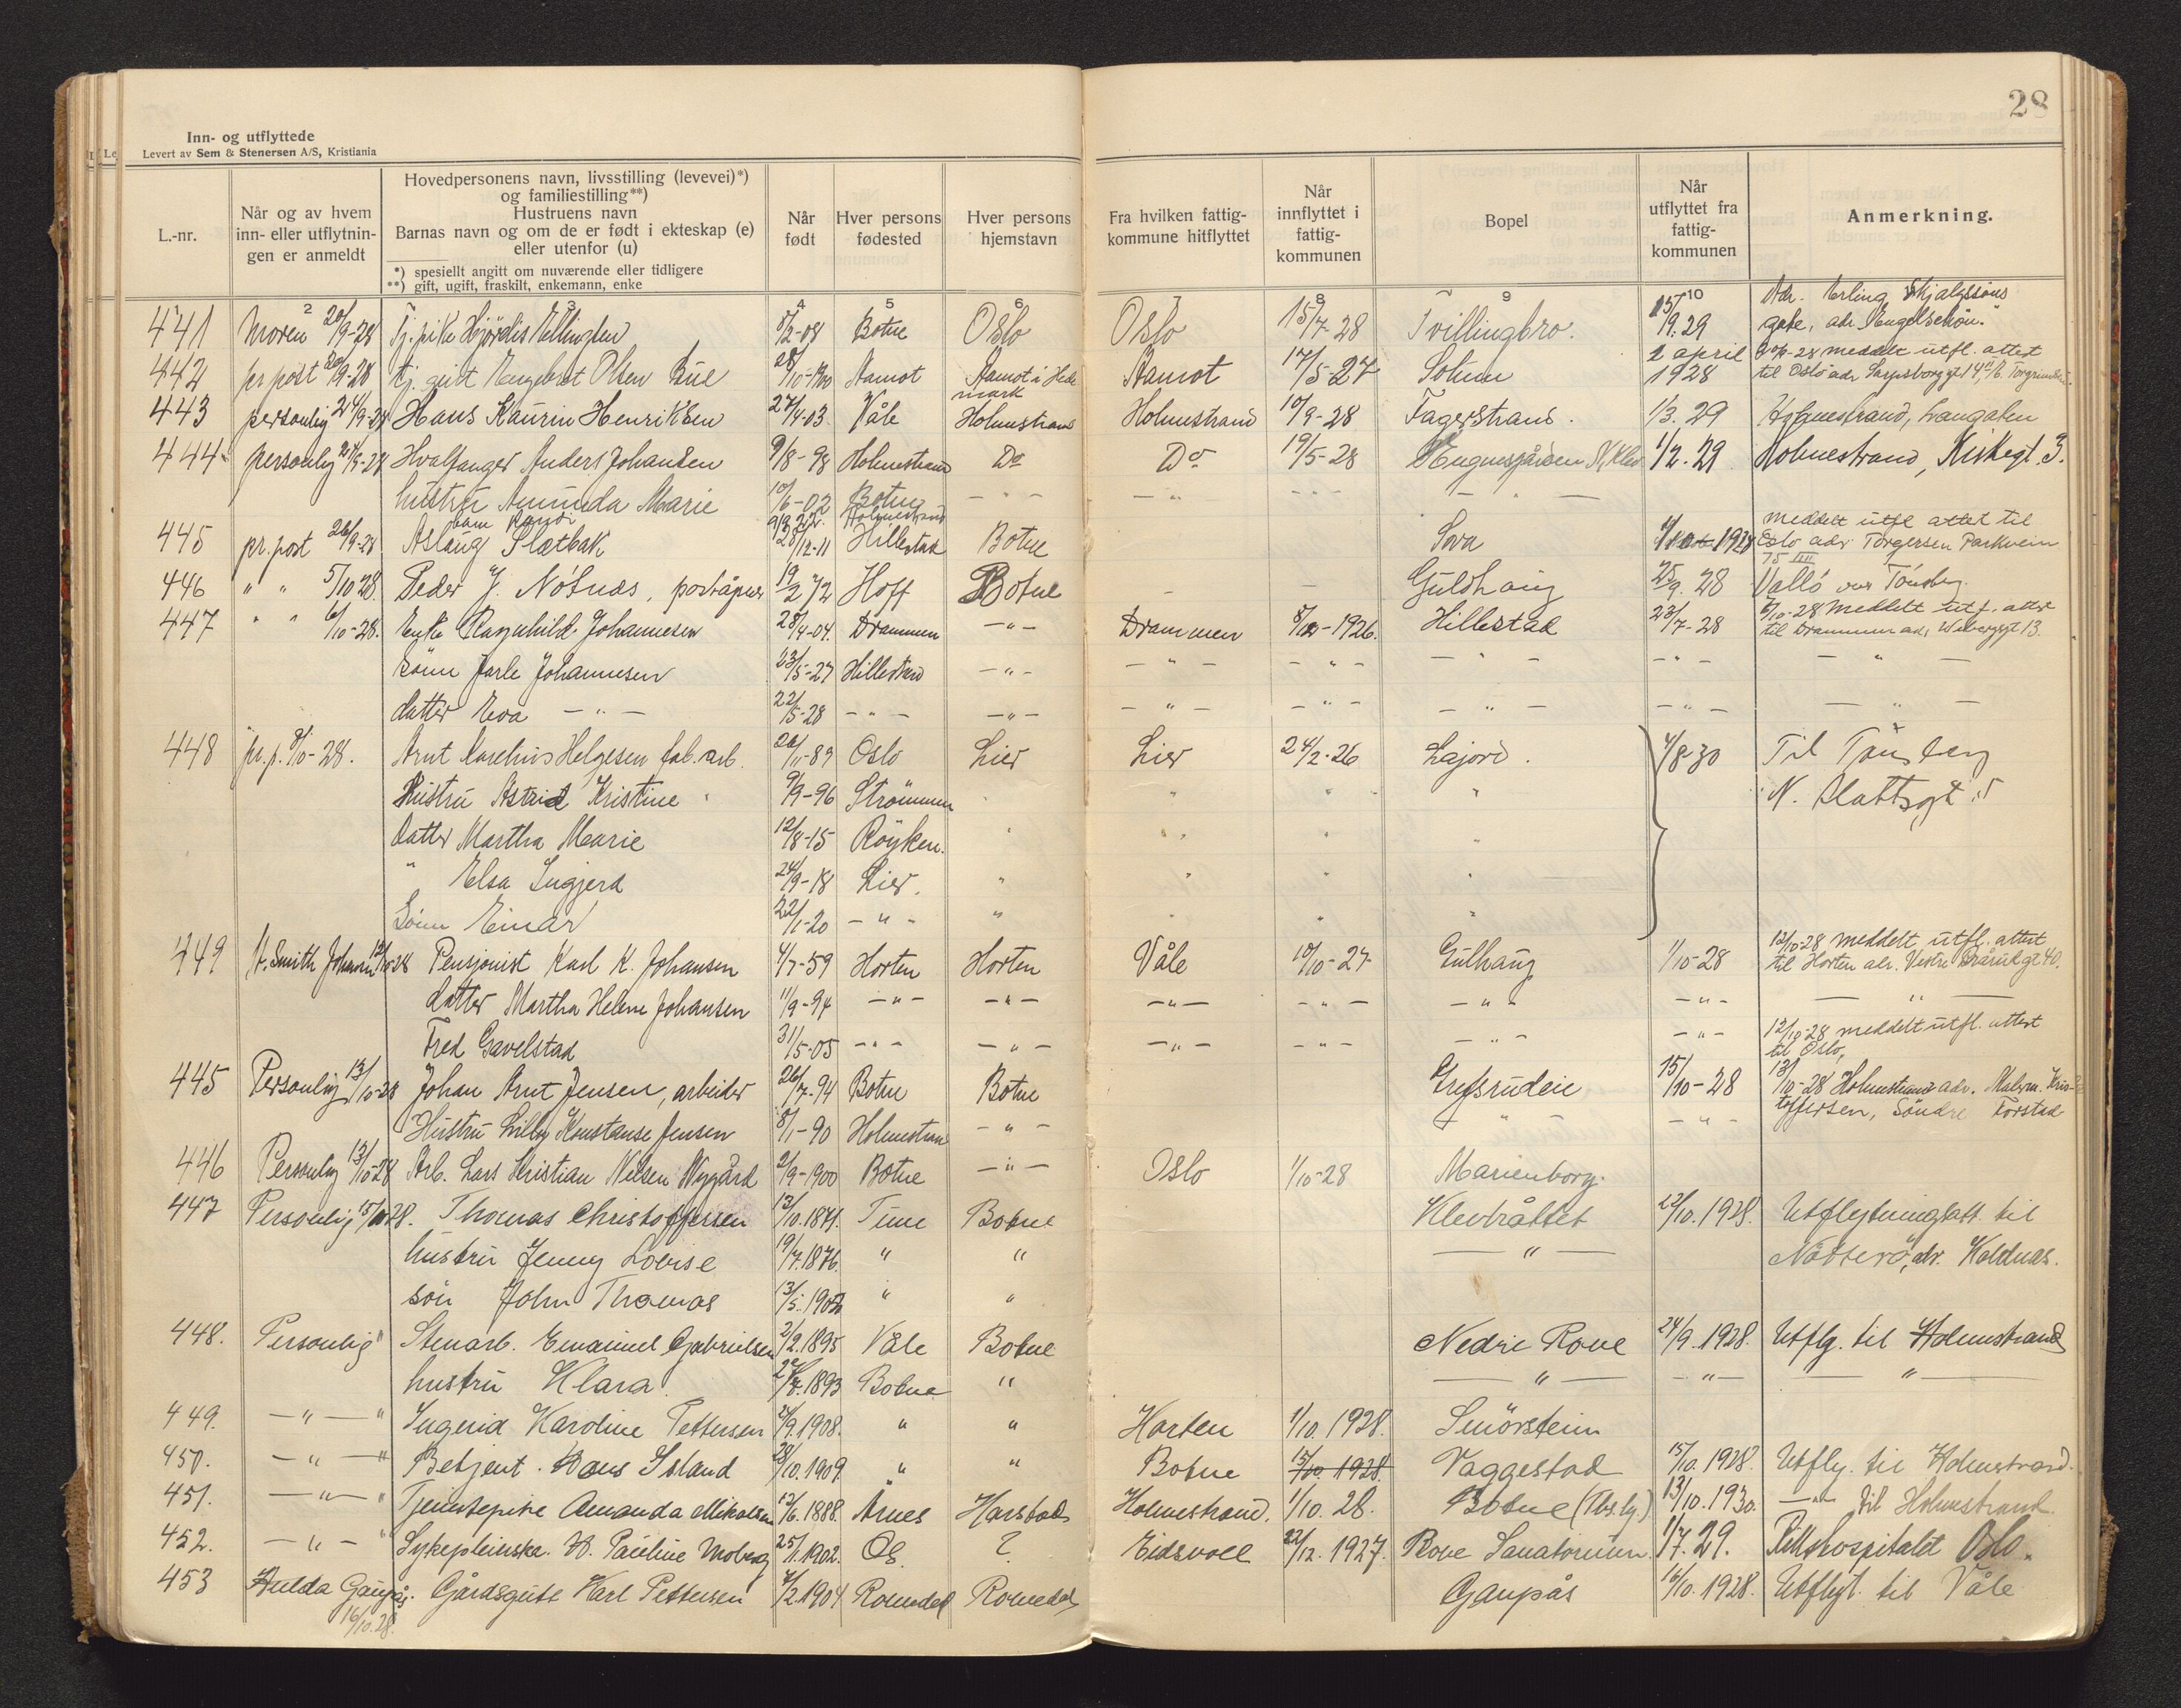 28
Inn- og utflyttede
Levert av Sem & Stenersen A/S, Kristiania
L.-nr.
Når og av hvem inn- eller utflytnin-gen er anmeldt
Hovedpersonens navn, livsstilling (levevei)*) og familiestilling**)
Hustruens navn
Barnas navn og om de er født i ekteskap (e) eller utenfor (u)
*) spesiellt angitt om nuværende eller tidligere
**) gift, ugift, fraskilt, enkemann, enke
Når født
Hver persons fødested
Hver persons hjemstavn
Fra hvilken fattig-kommune hitflyttet
Når innflyttet i fattig-kommunen
Bopel
Når utflyttet fra fattig-kommunen
Anmerkning.
2 3 4 5 6 7 8 9 10
441 Moren 20/9-28 Tj.pike Hjördis Ellingsen 8/2-08 Botne Oslo Oslo 15/7-28 Tvillingbro. 15/9.29 Adr. Erling Skjalgssöns
gate, adr.
442 pr post 20/9-28 tj. gutt Engebret Olsen Bue 28/10-1900 Aamot Aamot i Hedemark Aamot 17/5-27 Solum 2 april 1928 20/9-28 meddelt utfl. attest
til Oslo adr Sarpsborggt
443 personlig 24/9-28 Hans Kaurin Henriksen 27/4-03 Våle Holmestrand Holmestrand 10/9-28 Fagerstrand. 1/3.29 Holmestrand, Langgaten
444 personlig 27/9-28 Hvalfanger Anders Johansen 9/8-98 Holmestrand Do Do 19/5-28 1/2.29 Holmestrand, Kirkegt. 3.
hustru Amunda Marie 10/6-02 Botne - " - - " - - " - - " -
barn Randi Holmestrand
445 pr. post 26/9-28 Aslaug Slætbak 28/12-11 Hillestad Botne Sova 1928 meddelt utfl attest til
Oslo adr Torgersen Parkvein
75 III
446 " " 5/10 28. Peder J. Nótnæs, postäpner 19/2 72 Hoff Botne - - Guldhaug 25/9.28 Valló over Tönsberg.
447 " " 6/10-28. Enke Ragnhild Johannesen 28/4-04. Drammen - " - Drammen 8/12-1926. Hillestad 23/7-28 6/10-28 Meddelt utf. attest
til Drammen adr. Wibergsgt 13.
sönn Jarle Johannesen 23/5-27 Hillestad - " - - " - - " - - " - - " - - " -
datter Eva - " - 22/5-28 - " - - " - - " - - " - - " - - " - - " -
448 pr. p. 9/10-28. Arnt Helgesen fab.arb. 26/11-89 Oslo Lier Lier 24/2-26 Lajord. 4/8-30 Til Tönsberg
Hustru Astrid Kristine " 9/9-96 Strömmen " " " " N. Slottsgt 15
datter Martha Marie 12/8-15 Röyken. " " " "
" Elsa Ingjerd 24/9-18 Lier. " " " "
Sönn Einar 22/1-20 - " - " " " "
449 A. Smith Johansen 12/10-28 Pensjonist Karl K. Johansen 4/7-59 Horten Horten Våle 10/10-27 Gulhaug 1/10-28 12/10-28 meddelt utfl. attest
til Horten adr. Vestre gt 40.
datter Martha Helene Johansen 11/9-94 - " - - " - - " - - " - - " - - " - - " -
Fred Gavelstad 31/5-05 - " - - " - - " - - " - - " - - " - 12/10-28 meddelt utfl. attest
til Oslo,
445 Personlig 13/10-28 Johan Arnt Jensen, arbeider 26/7-94 Botne Botne Grefsrudeie 15/10-28 13/10-28 Holmestrand adr. Malerm. Kris-
toffersen, Söndre Torstad
Hustru Lilly Konstanse Jensen 8/1-90 Holmestrand - " - - " - - " -
446 Personlig 13/10-28 Arb. Lars Kristian Nilsen Nygård 2/9-1900 Botne - " - Oslo 1/10-28 Marienborg.
447 Personlig 15/10 28. Thomas Christoffersen 13/10.1871. Tune Botne Klevbråttet 22/10.1928. Utflytningsatt. til
hustru Jenny Lovise 19/7.1876. " " - " - Nötterö, adr. Kaldnæs.
sön John Thomas 13/5. " "
448. Personlig " Stenarb. Emanuel Gabrielsen 2/2.1895 Våle Botne Nedre Rove 24/9.1928. Utflg. til Holmestrand
hustru Klara. 1893 Botne " - " - - " - - " -
449. - " - " Ingerid Karoline Pettersen 24/9.1908. " " Horten 1/10.1928. Smörstein
450. - " - " Betjent. Hans Island 28/10.1909. " " Botne 15/10.1928. Vaggestad 15/10.1928. Utflg. til Holmestrand.
451. - " - " Tjenestepike Amanda Mikalsen 12/6.1888. Årnes Harstad Holmestrand. 1/10.28. Botne (Tbs. hj.) 13/10.1930. - " - til Holmestrand.
452. - " - " Sykepleierska. H. Pauline Moberg 25/1.1902. Ås ? Eidsvoll 22/12.1927. Rove Sanatorium. 1/7.29. Rikshospitalet Oslo.
453 Hulda Gaupås. Gårdsgutt Karl Pettersen 4/2.1904 Romedal Romedal Gaupås 16/10.1928. Utflyt. til Våle
16/10.28.